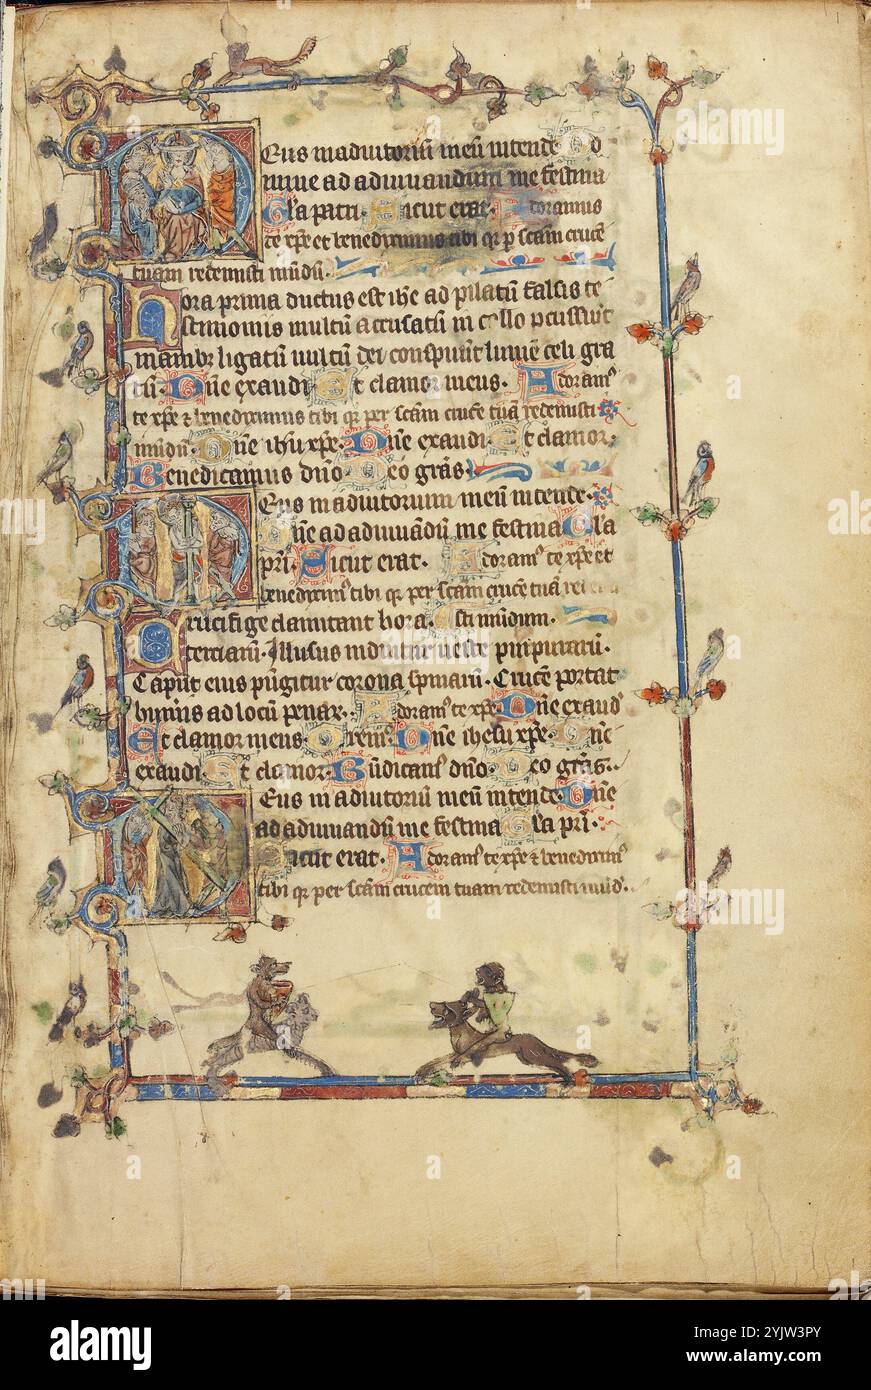 Deus in adiutoriū meū intende Do
mine ad adiuuandum me festina
Gl'a patri. Sicut erat. Adoramus
te xp̄e et benedicimus tibi qꝛ p scām crucē
tuam redemisti mūdū.
Hora prima ductus est ihc̄ ad pilatū falsis te
stimoniis multū accusatū in collo pcussiūt
manibꝫ ligatū uultū dei conspuūt lumē celi gra
tū. Dn̄e exaudi Et clamor meus. Adoramꝰ
te xp̄e ⁊ benedicimus tibi qꝛ per scām crucē tuā redemisti
mūdū. Dn̄e ihū xp̄e. Dn̄e exaudi. Et clamor.
Benedicamus dn̄o. Deo grās.
Deus in adiutorium meū intende.
Dn̄e ad adiuuādū me festina Gl'a
pr̄i. Sicut erat. Adoramꝰ te xp̄e et
benedicimꝰ tibi qꝛ per scām crucē tuā
Crucifige clamitant hora sti mūdum.
terciarū. Illusus induitur ueste purpurarū.
Caput eius pūgitur corona spinarū. Crucē portat
humīs ad locū penar. Adoramꝰ te xp̄e. Dn̄e exaud'
Et clamor meus. Oremꝰ. Dn̄e ihesu xp̄e. Dn̄e
exaudi. Et clamor. Būdicamꝰ dn̄o. Deo grās.
Deus in adiutoriū meū intende. Dn̄e
ad adiuuandū me festina Gl'a pr̄i.
Sicut erat. Adoramꝰ te xp̄e ⁊ benedicimꝰ
tibi qꝛ per scām crucem tuam redemisti mūd'.
alamy
Image ID: 2YJW3PY
www.alamy.com